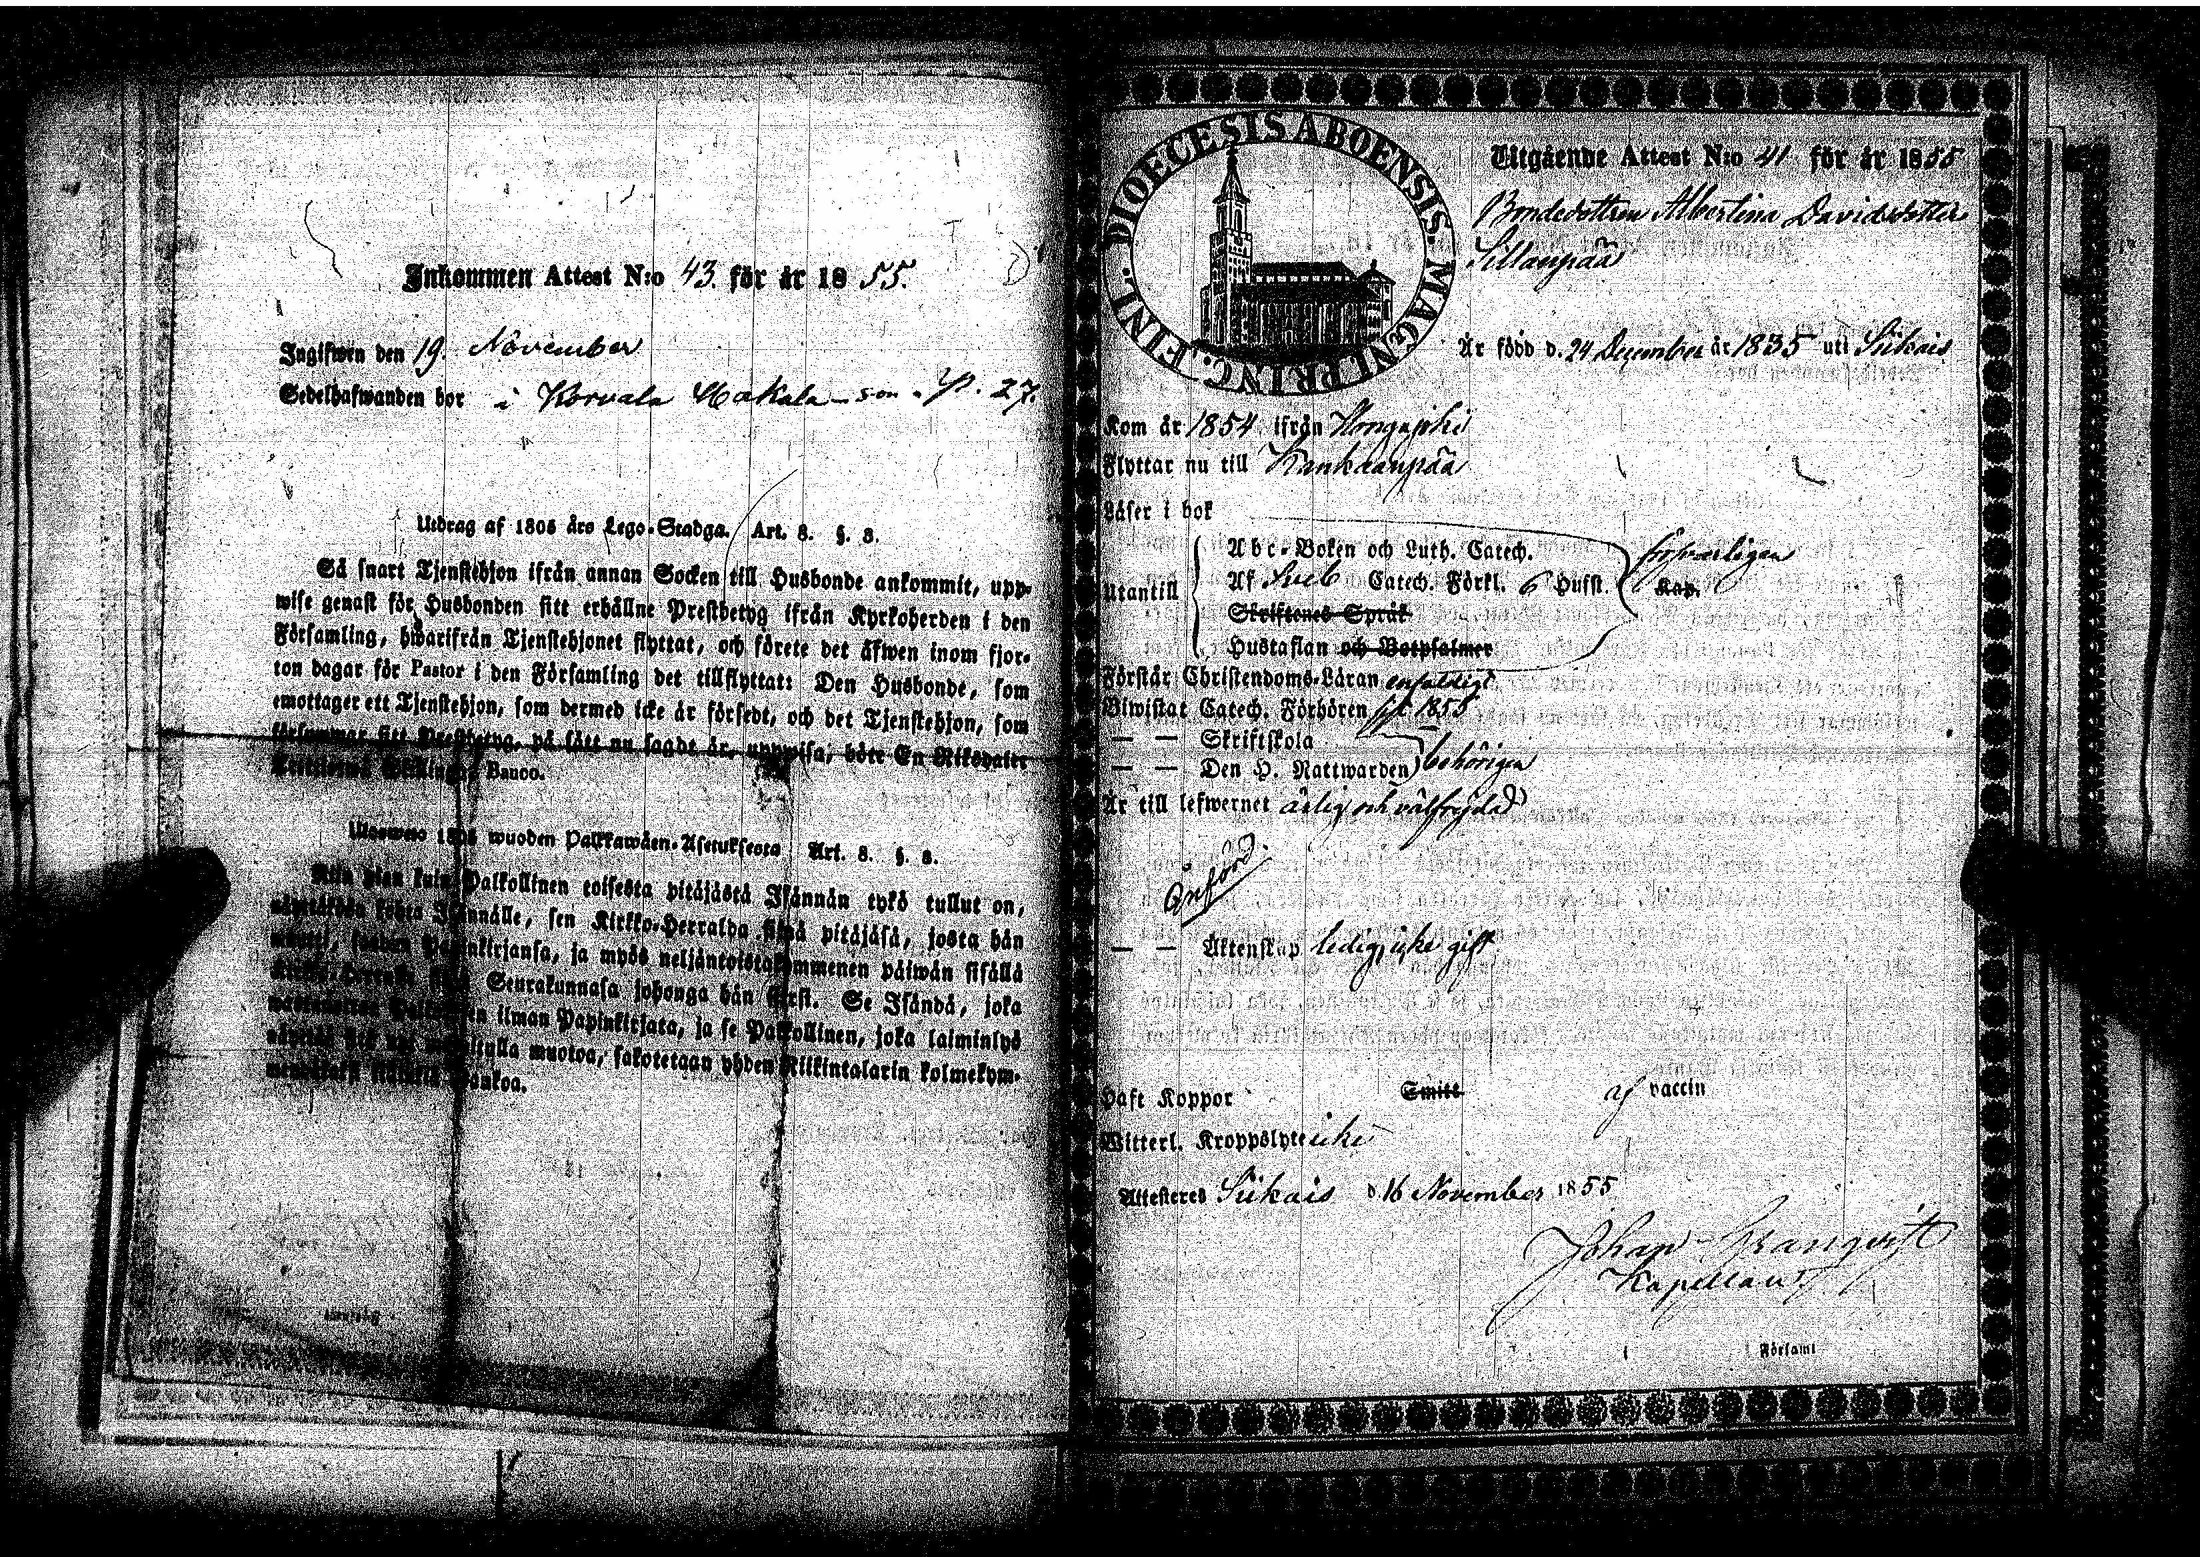 Inkommen Attest N:o 43. för år 1855.
Ingifwen den 19. November
Sedelhafwanden bor i Korvala Makala - son. P. 27.
Utdrag af 1805 års Lego-Stadga. Art. 8. §. 8.
Så snart Tjenstehjon ifrån annan Socken till Husbonde ankommit, upp-
wise genast för Husbonden sitt erhållne Prestbetyg ifrån Kyrkoherden i den
Församling, hwarifrån Tjenstehjonet flyttat, och förete det äfwen inom fjor-
ton dagar för Pastor i den Församling det tillflyttat: Den Husbonde, som
emottager ett Tjenstehjon, som dermed icke är försedt, och det Tjenstehjon, som
försummar sitt Prestbetyg, på sätt nu sagdt är, uppwisa, böte En Riksdaler
Banco.
wuoden Palkkawäen-Asetuksesta Art. 8. §. 8.
Niin pian kuin Palkollinen toisesta pitäjästä Isännän tykö tullut on,
Isännälle, sen Kirkko-Herralda siinä pitäjäsä, josta hän
Papinkirjansa, ja myös neljäntoistakymmenen päiwän sisällä
Seurakunnasa johonga hän siirsi. Se Isändä, joka
ilman Papinkirjata, ja se Palkollinen, joka laiminlyö
muotoa, sakotetaan yhden Riikintalarin kolmekym-
Bankoa.
DIOECESIS ABOENSIS. MAGNI PRINC. FINL.
Utgående Attest N:o 41 för år 1855
Bondedottren Albertina Davidsdotter
Sillanpää
Är född d. 24 December år 1835 uti Siikais
Kom år 1854 ifrån Hongajoki
Flyttar nu till Kankaanpää
Läser i bok
Utantill
Abc-Boken och Luth. Catech.
försvarligen
Af Sveb Catech. Förkl. 6 Hufst. Kap.
Skriftenes Språk
Hustaflan och Botpsalmer
Förstår Christendoms-Läran enfaldigt
Biwistat Catech. Förhören för 1855
— — Skriftskola
— — Den H. Nattwarden behörigen
Är till lefwernet ärlig och välfrejdad
Anförd.
— — Äktenskap ledig, icke gift
Haft Koppor Smitt af vaccin
Witterl. Kroppslyte icke
Attesteres Siikais d. 16 November 1855
Johan Granqvist
Kapellan
Församl